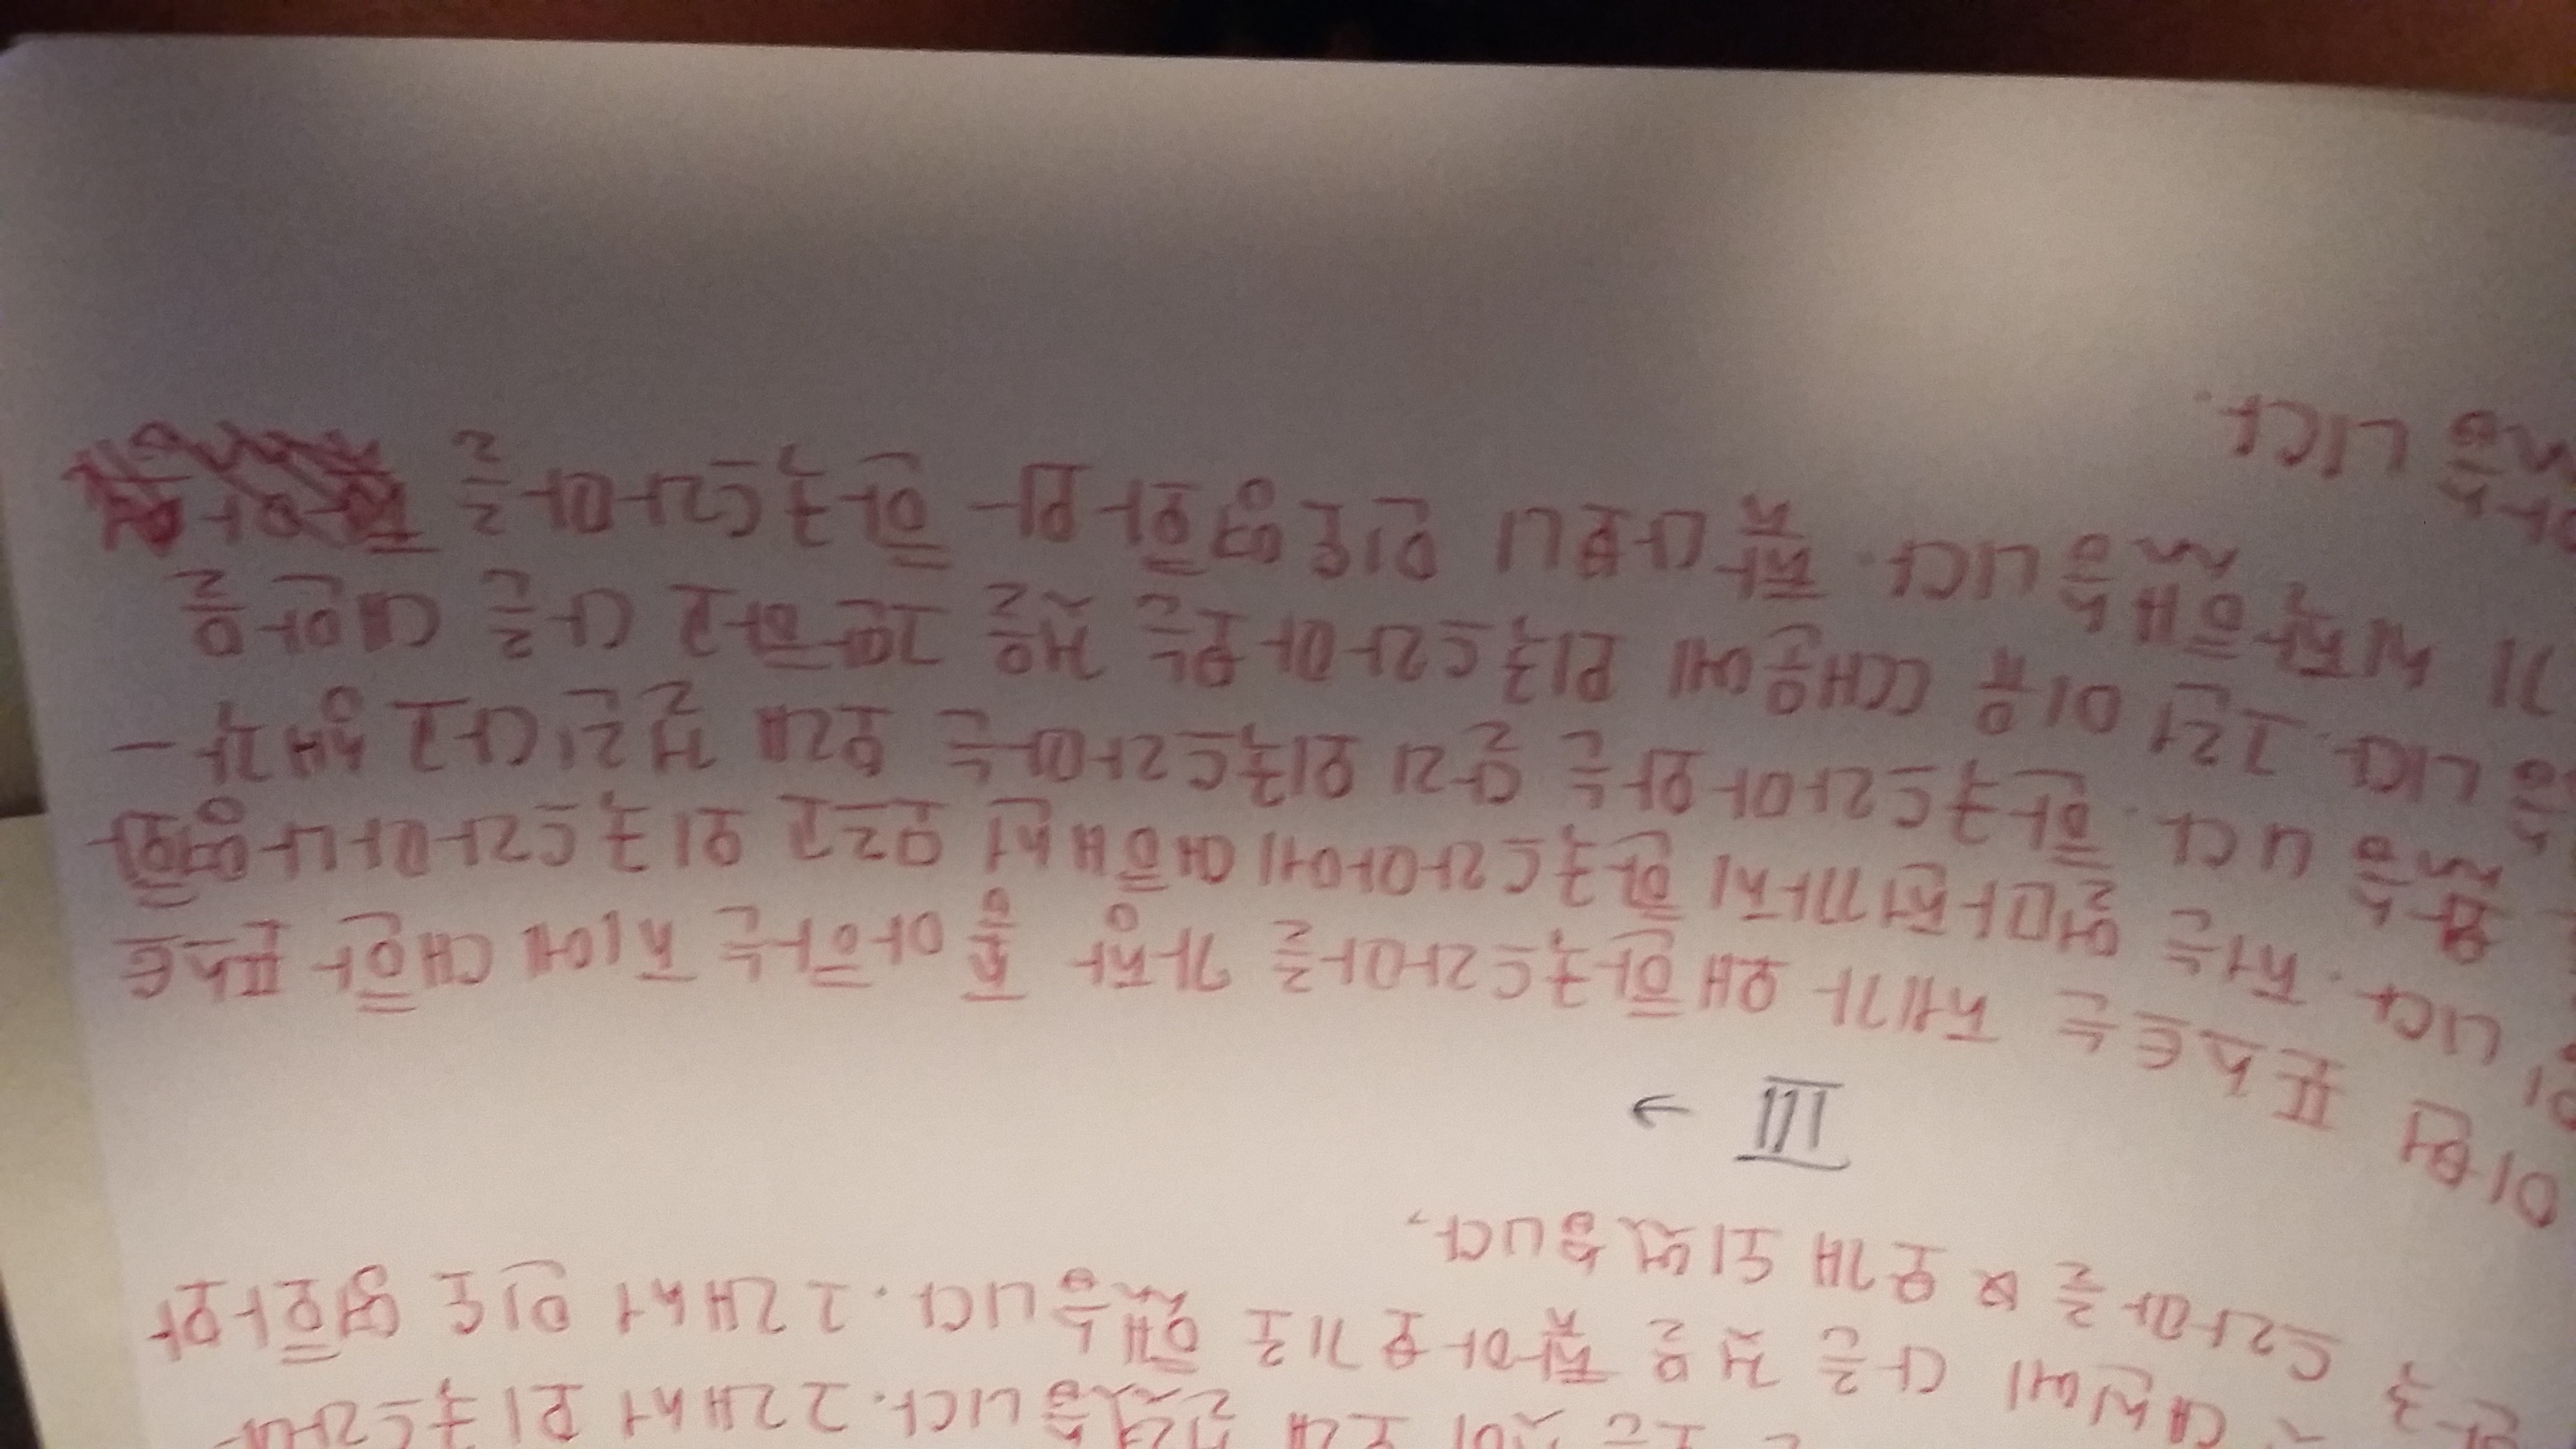 오래 걸렸습니다. 그래서 외국드라마
대신에 다른 것을 찾아보기로 했습니다. 그래서 인도 영화와
한국 드라마를 보게 되었습니다.
III →
이번 포스트는 제가 왜 한국드라마를 가장 좋아하는지에 대한 포스트
입니다. 저는 얼마전까지 한국드라마에 대해선 모르고 외국드라마나 영화
봤습니다. 한국드라마와는 달리 외국드라마는 오래 걸린다고 생각-
습니다. 그런 이유 때문에 외국드라마 보는 것을 그만하고 다른 대안을
기 시작했습니다. 찾다보니 인도영화와 한국드라마를
습니다.